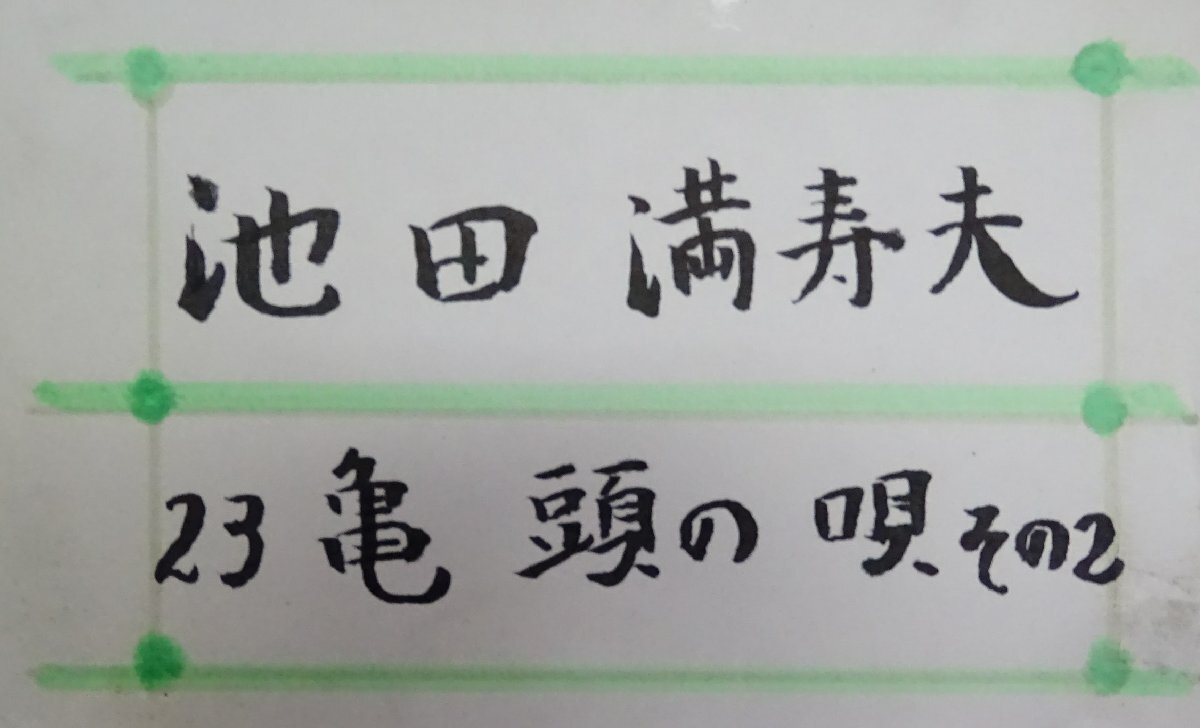 池田満寿夫
23亀頭の唄その2